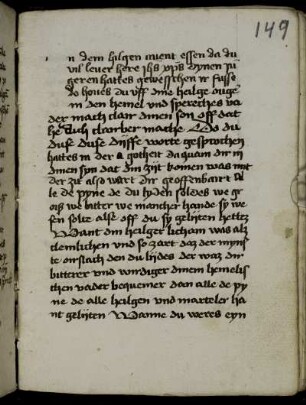 149
n dem hilgen auent essen da du
vil leuer here ihs xps dynen iu
geren hattes gewesschen ir fusse
do houes du vff dine heilge ouge
in den hemel vnd spreches va
der mach clair dinen son off dat
he dich clareber mache Do du
duse duse dusse worte gesprochen
hattes in der gotheit da quam dir in
dinen syn dat din zijt komen was mit
der zijt also wart dir groffenbairt al
le de pyne de du lyden soldes we gr
ois we bitter we mancher hande sy we
sen solte als off du sy geliden hettz
Want din heilger licham was alz
clemlichen vnd so zart daz der myns
te onslach den du lijdes der waz dir
bitterer vnd wirdiger dinem hemelis
chen vader bequemer dan alle de py
ne de alle heilgen vnd marteler ha
nt geliten Wanne du weres eyn